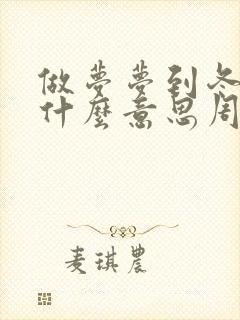 做夢夢到冬
什麼意思周
麦琪農